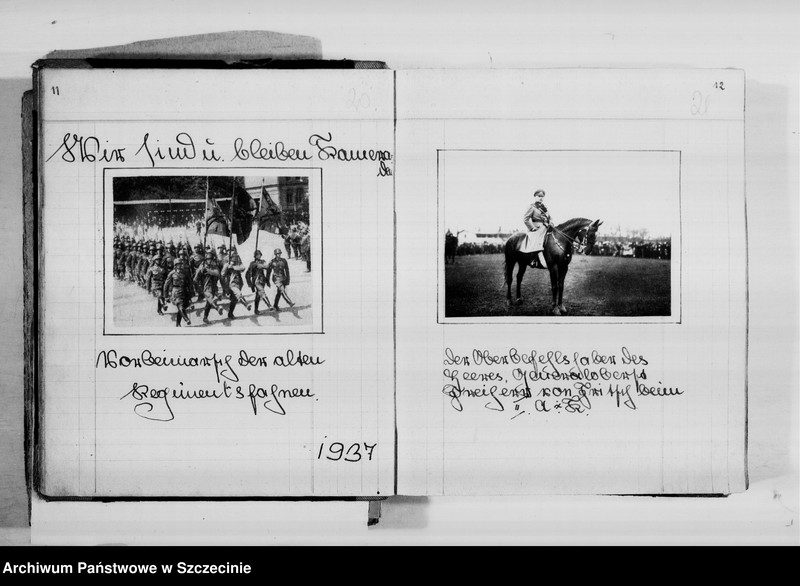 11
20.
Wir sind u. bleiben Kamera
de
Vorbeimarsch der alten
Regimentsfahnen.
1937
12
21
Der Oberbefehlshaber des
Heeres, Generaloberst
Freiherr von Fritsch beim
II. A.K.
Archiwum Państwowe w Szczecinie